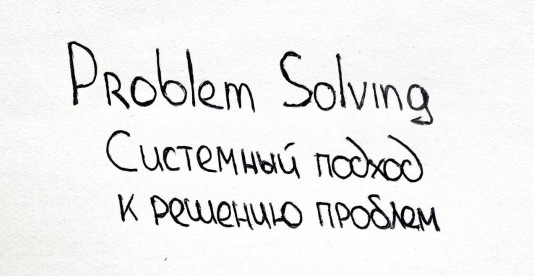 Problem Solving
Системный подход
к решению проблем